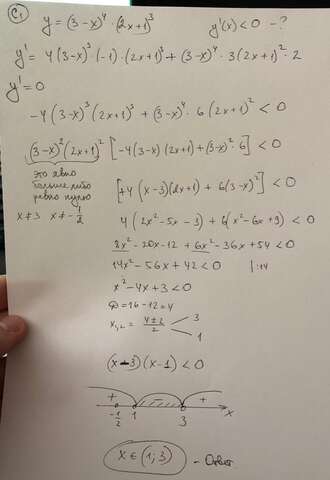 C1
y = (3-x)⁴ · (2x+1)³ y'(x) < 0 - ?
y' = 4(3-x)³·(-1)·(2x+1)³ + (3-x)⁴·3(2x+1)²·2
y' = 0
-4(3-x)³(2x+1)³ + (3-x)⁴·6(2x+1)² < 0
(3-x)²(2x+1)² [-4(3-x)(2x+1) + (3-x)²·6] < 0
это явно
больше либо
равно нулю
x≠3 x≠-1/2
[+4(x-3)(2x+1) + 6(3-x)²] < 0
4(2x²-5x-3) + 6(x²-6x+9) < 0
8x²-20x-12 + 6x²-36x+54 < 0
14x²-56x+42 < 0 |:14
x²-4x+3 < 0
D = 16-12 = 4
x₁,₂ = (4±2)/2 3
1
(x-3)(x-1) < 0
+ - +
-1/2 1 3 x
x ∈ (1; 3) - Ответ